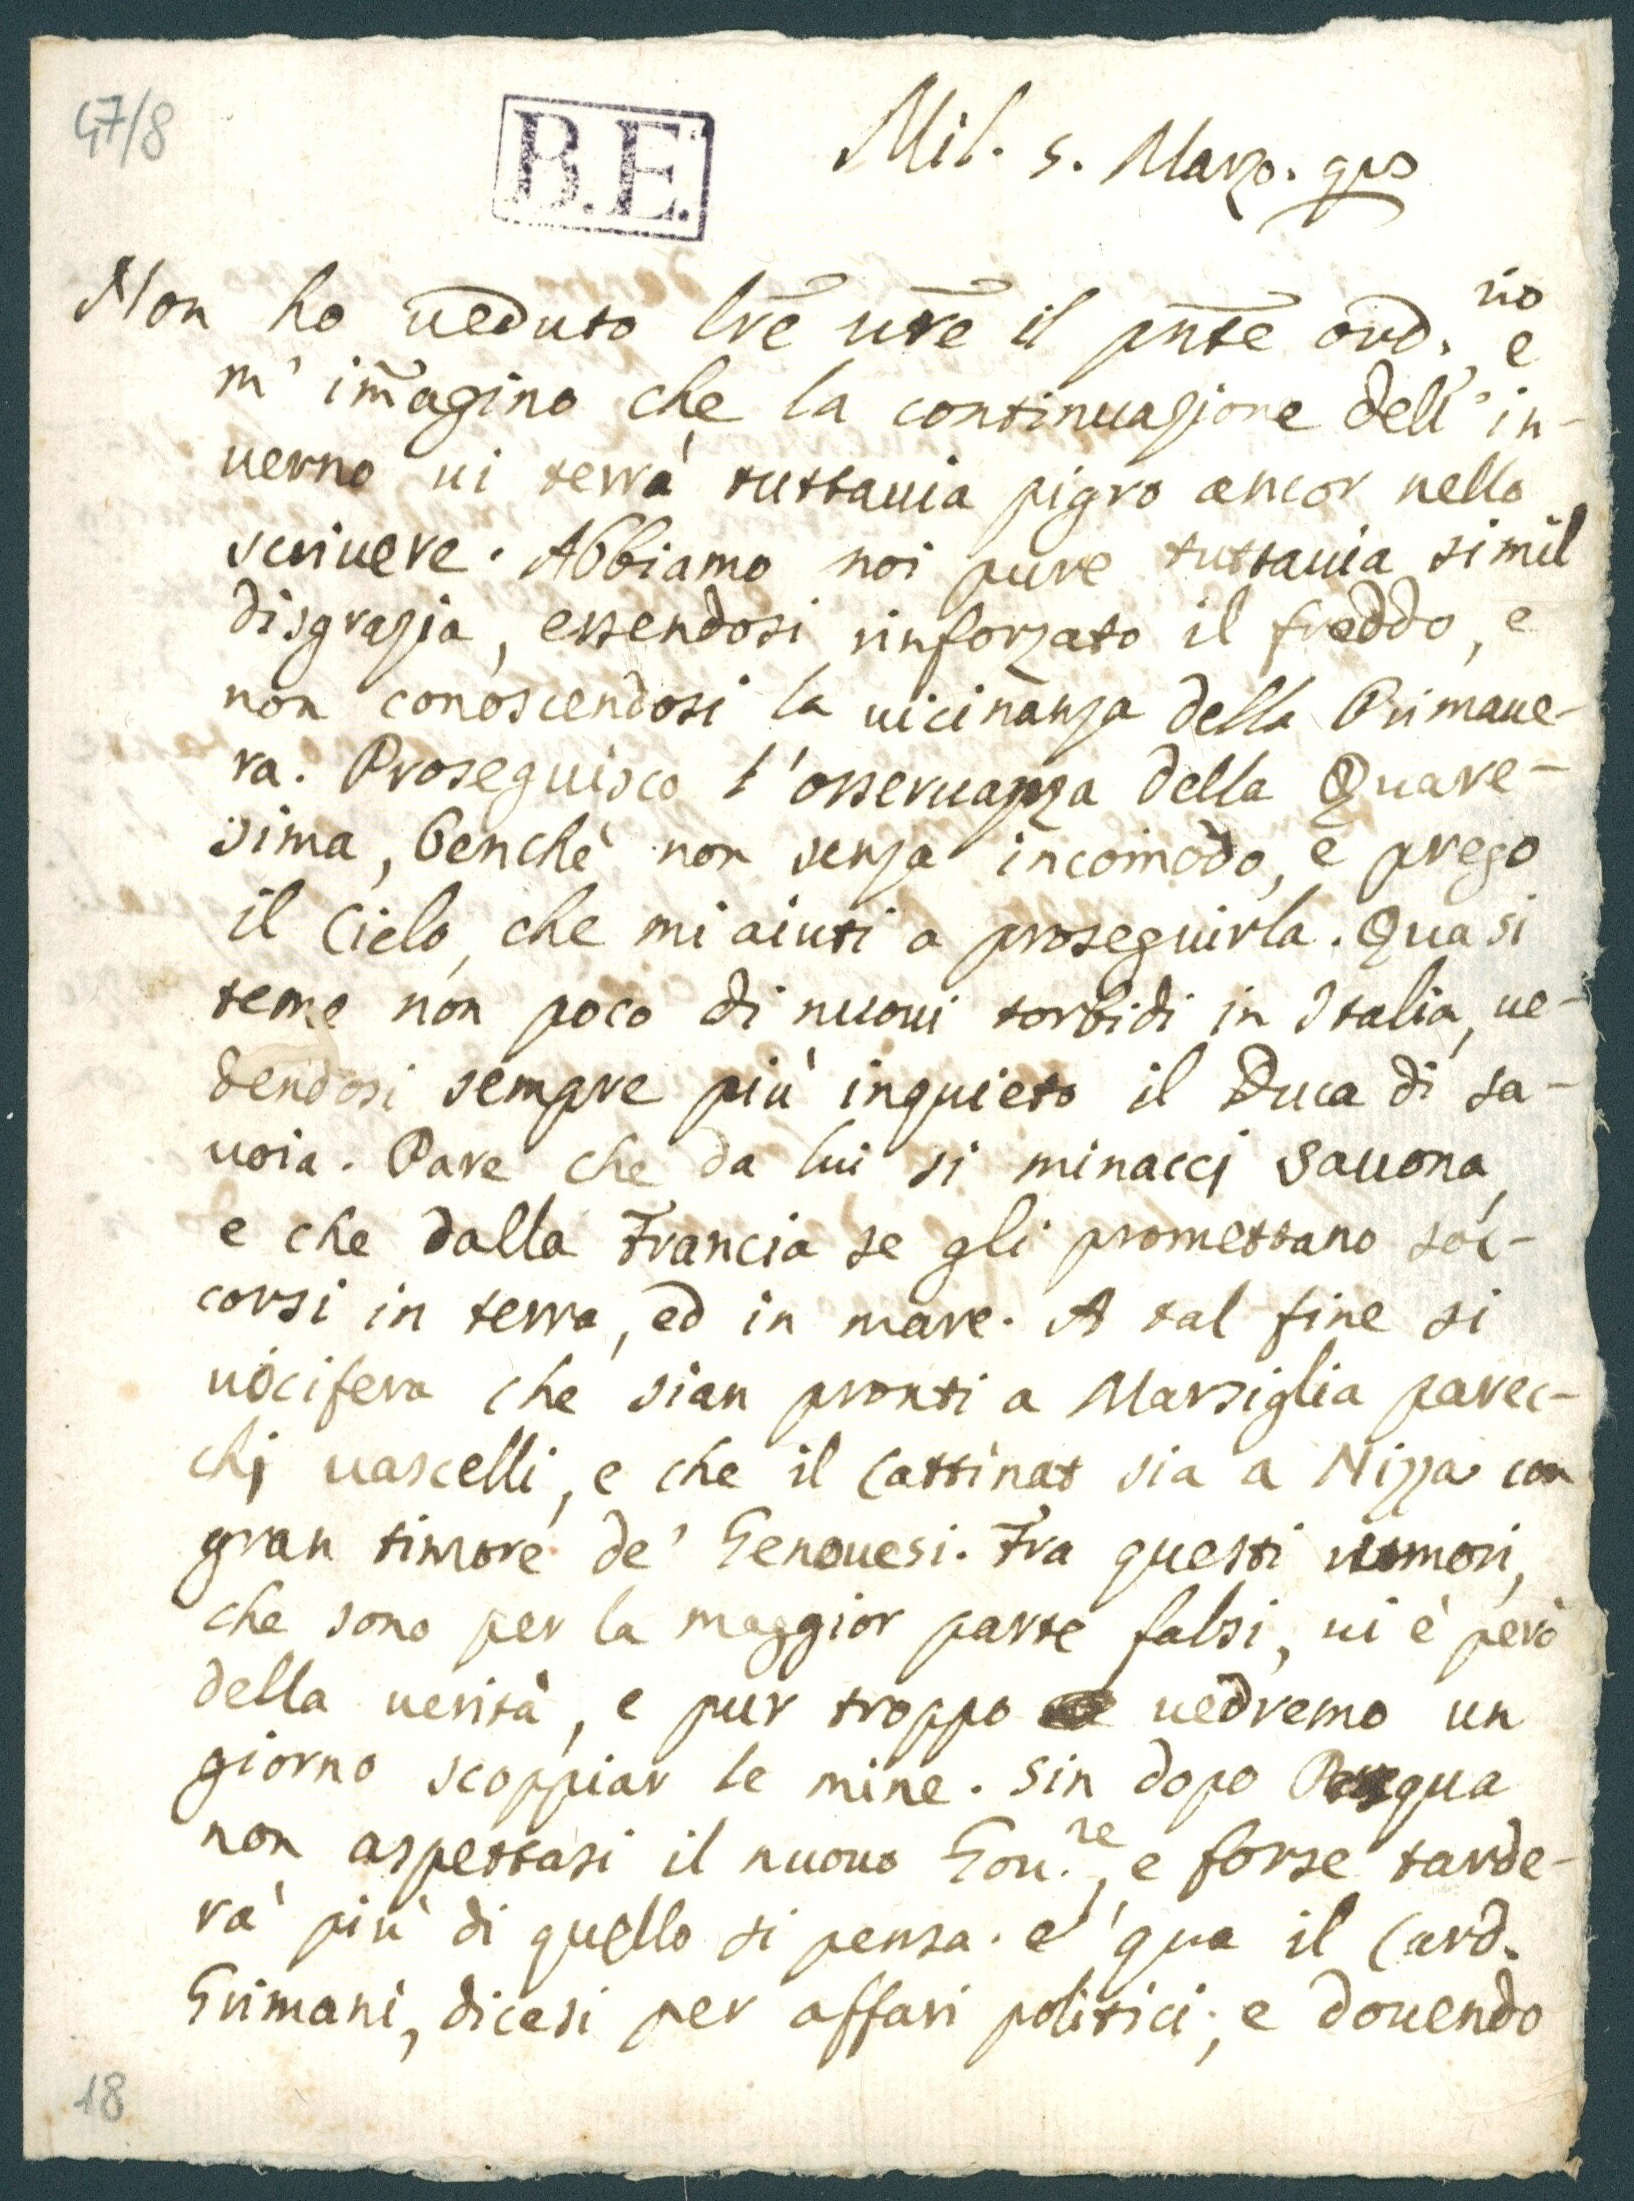 47/8
B.E.
Mil. 5. Marzo. 98
Non ho ueduto lre ure il pnte ord.rio e
m' immagino che la continuazione dell' in-
uerno ui terrà tuttauia pigro ancor nello
scriuere. Abbiamo noi pure tuttauia simil
disgrazia, essendosi rinforzato il freddo, e
non conoscendosi la uicinanza della Primaue-
ra. Proseguisco l'osseruanza della Quare-
sima, benchè non senza incomodo, e prego
il Cielo, che mi aiuti a proseguirla. Quasi
teme non poco di nuoui torbidi in Italia, ue-
dendosi sempre più inquieto il Duca di Sa-
uoia. Pare che da lui si minacci Sauona,
e che dalla Francia se gli promettano soc-
corsi in terra, ed in mare. A tal fine si
uocifera che sian pronti a Marsiglia parec-
chj uascelli, e che il Cattinat sia a Nizza con
gran timore de' Genouesi. Fra questi rumori,
che sono per la maggior parte falsi, ui è però
della uerità, e pur troppo uedremo un
giorno scoppiar le mine. Sin dopo Pasqua
non aspettasi il nuouo Gou.re, e forse tarde-
rà più di quello si pensa. e' qua il Card.
Grimani, dicesi per affari politici; e douendo
18